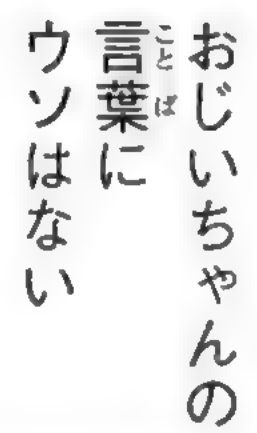 おじいちゃんの
言葉に
ウソはない